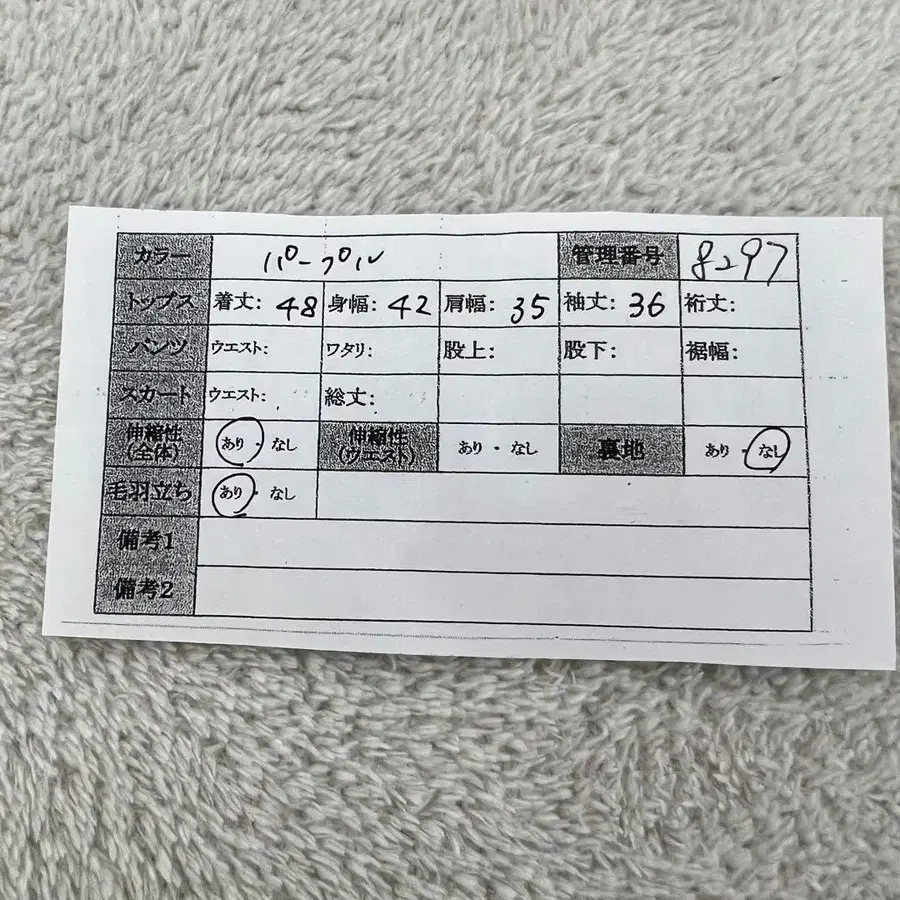 カラー パープル 管理番号 8297
トップス 着丈: 48 身幅: 42 肩幅: 35 袖丈: 36 裄丈:
パンツ ウエスト: ワタリ: 股上: 股下: 裾幅:
スカート ウエスト: 総丈:
伸縮性 (全体) あり・なし 伸縮性 (ウエスト) あり・なし 裏地 あり・なし
毛羽立ち あり・なし
備考1
備考2